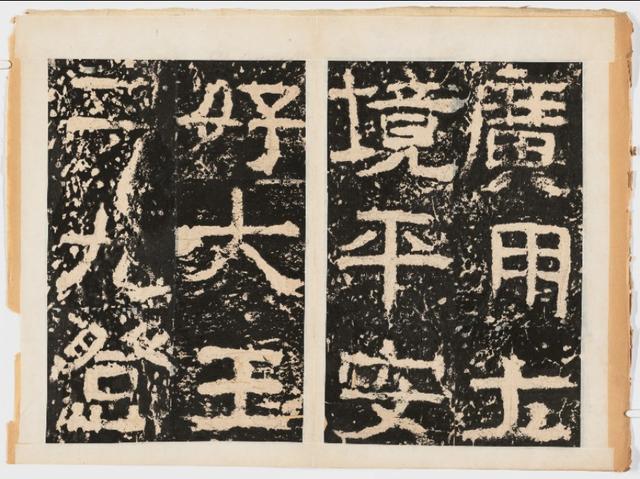 廣用土
境平安
好大王
二九登